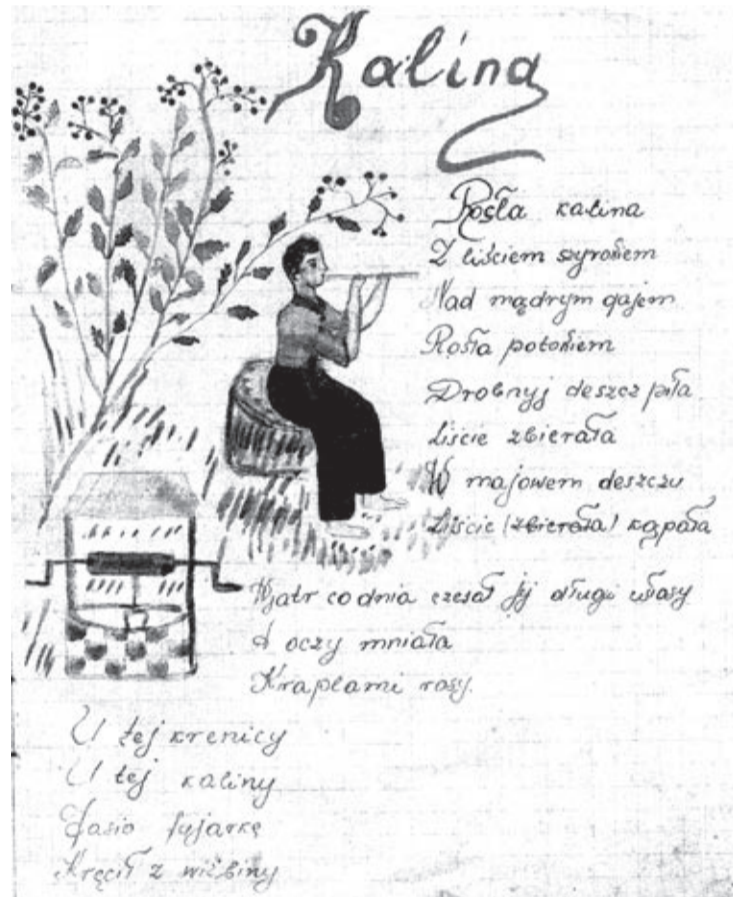 Kalina
Rosła kalina
Z liściem szyrokiem
Nad mądrym gajem
Rosła potokiem
Drobnyj deszcz piła
Liście zbierała
W majowem deszczu
Liście (zbierała) kąpała
Wjatr co dnia czesał jij długi włosy
A oczy mniała
Kraplami rosy.
U tej krenicy
U tej kaliny
Jasio fyjarkę
Kręcił z wiżbiny